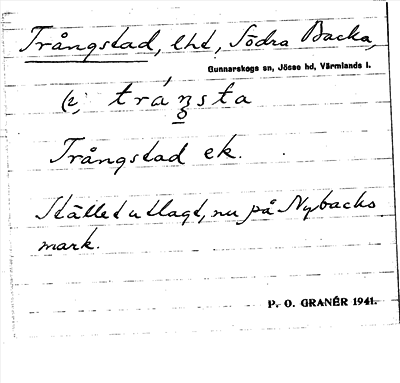 Trångstad, lht, Södra Backa,
Gunnarskogs sn, Jösse hd, Värmlands l.
(2) trånsta
Trångstad ek.
Stället utlagt, nu på Nybacks
mark.
P. O. GRANÉR 1941.